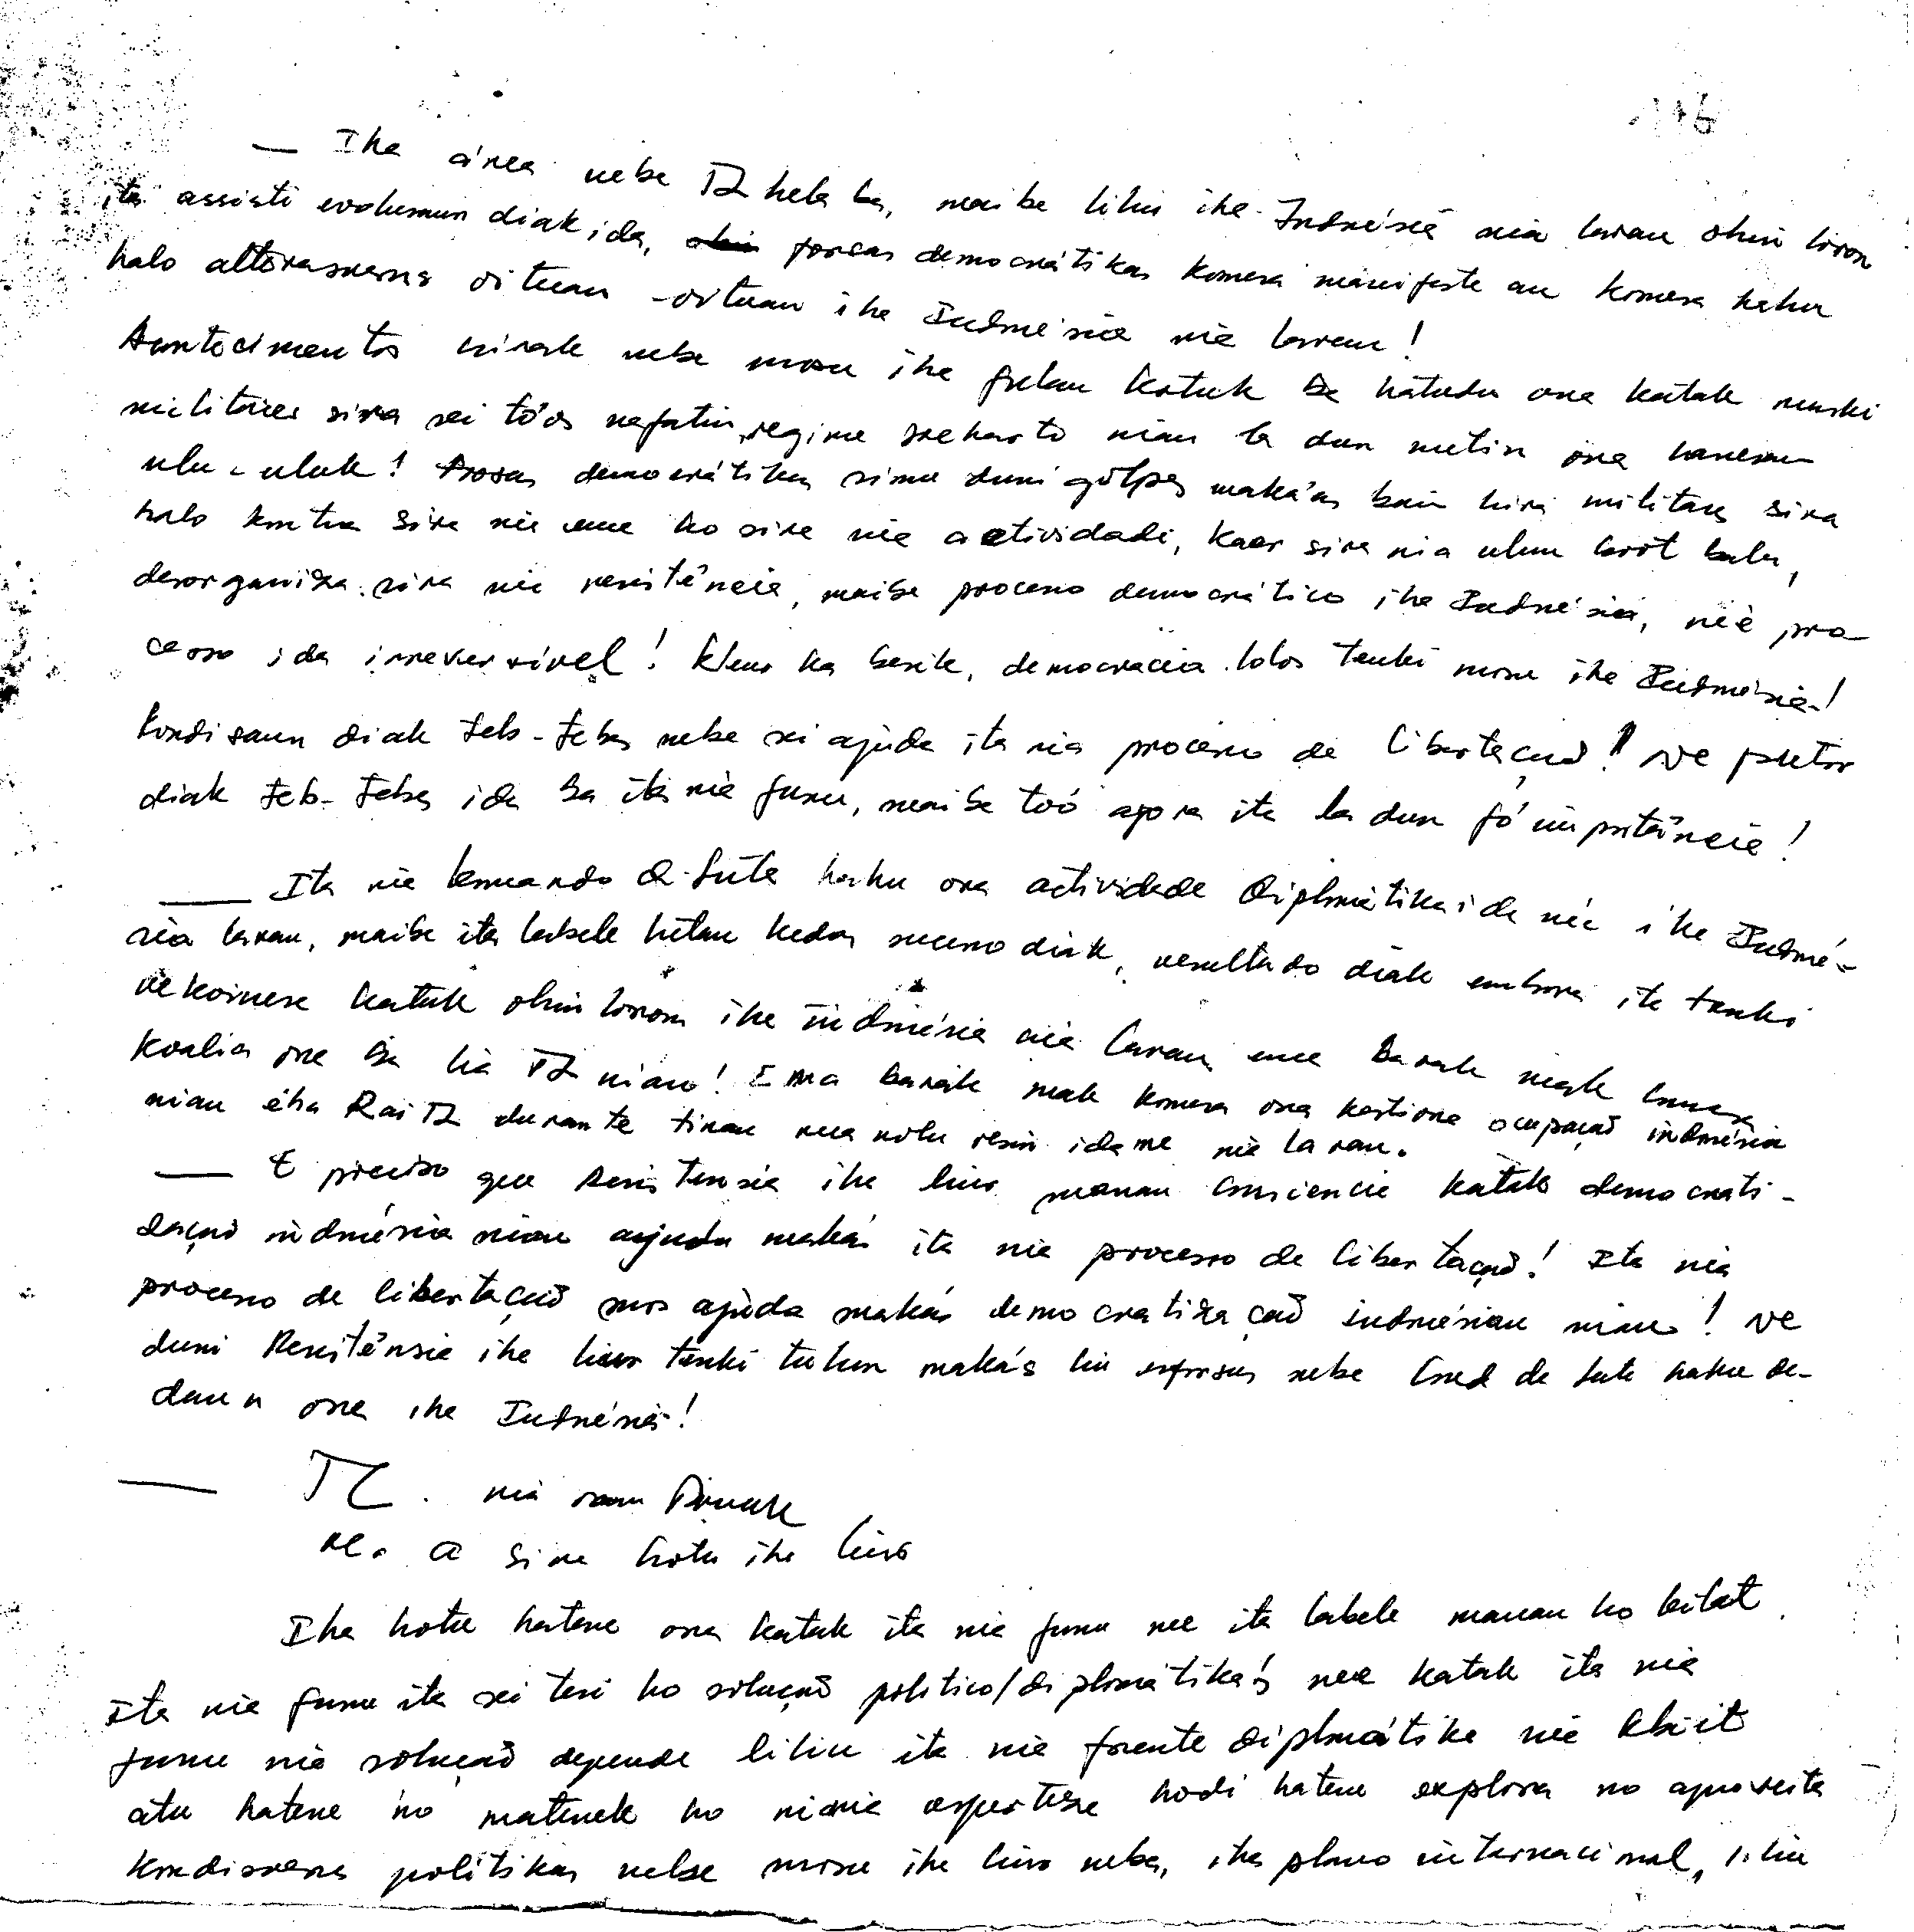 — Iha área nebe TL hela ba, maibe liliu iha Indonésia nia laran ohin loron
ita assisti evolusaun diak ida, forsas demokrátikas komesa manifesta an komesa hahu
halo alterasoens oituan-oituan iha Indonésia nia laran!
Acontecimentos hirak nebe mosu iha fulan kotuk ba hatudu ona katak maski
militares sira sei tó'os nafatin, regime Soeharto nian la dun metin ona hanesan
uluk-uluk! Forsas democrátikas simu duni golpes maka'as bain hira militares sira
halo kontra sira nia ema ho sira nia actividade, kaer sira nia ulun boot balu,
desorganiza sira nia resistência, maibe processo democrático iha Indonésia, née pro-
cesso ida irreversível! Kleur ka besik, democracia lolos tenki mosu iha Indonésia!
Kondisaun diak tebe-tebes nebe sei ajuda ita nia processo de libertação! Ne factor
diak tebe-tebes ida ba ita nia funu, maibe to'o agora ita la dun fó importância!
— Ita nia komando da luta hahu ona actividade diplomátika ida née iha Indoné-
sia laran, maibe ita labele hetan kedas sucesso diak, resultado diak embora ita tenki
rekoinese katak ohin loron iha indonésia nia laran ema barak mak komesa
koalia ona ba lia TL nian! Ema barak mak komesa ona kestiona ocupação indonésia
nian iha Rai TL durante tinan rua nulu resin ida ne nia laran.
— É preciso que Resistensia iha liur manan consciencia katak democrati-
zação indonésia nian ajuda makás ita nia processo de libertação! Ita nia
processo de libertação mos ajuda makás democratização indonésian nian! Ne
duni Resistênsia iha liur tenki tulun makás liu esforsos nebe Cmd da luta hahu de-
daun n ona iha Indonésia!
— TL. nia oan
ne. a sira hotu iha liur
Iha hotu hatene ona katak ita nia funu nee ita labele manan ho kilat.
Ita nia funu ita sei tesi ho solução politico/diplomátika's nee katak ita nia
funu nia solução depende liliu ita nia frente diplomátika nia kbiit
atu hatene no matenek ho ninia expertise hodi hatene explora no aproveita
kondisoens politikas nebe mosu iha liur neba, iha plano internacional, liliu